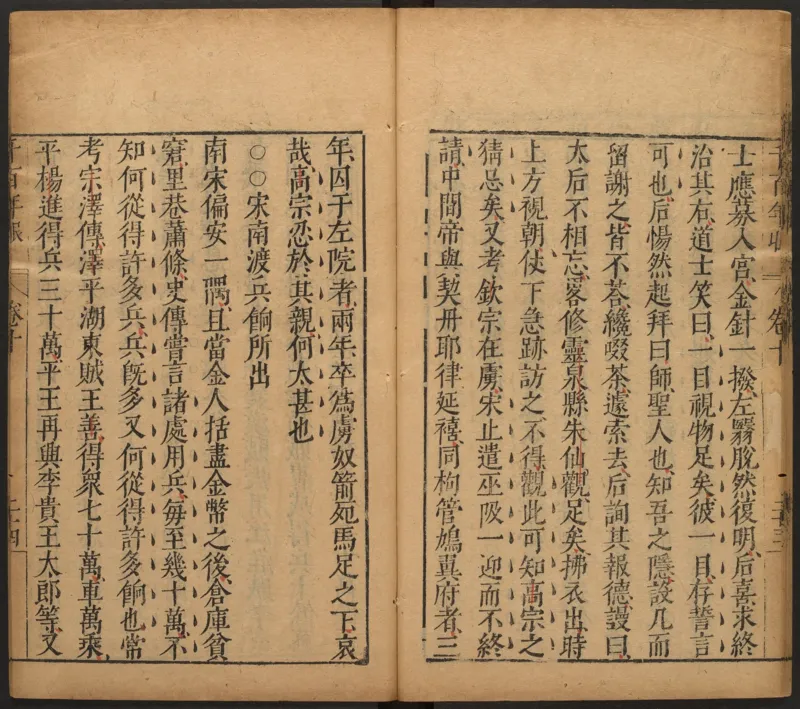 士應募入宮金針一撥左翳脫然復明后喜求終
治其右道士笑曰一目視物足矣彼一目存誓言
可也后惕然起拜曰師聖人也知吾之隱設几而
留謝之皆不荅纔啜茶遽索去后詢其報德謾曰
太后不相忘畧修靈泉縣朱仙觀足矣拂衣出時
上方視朝仗下急跡訪之不得觀此可知高宗之
猜忌矣又考欽宗在虜宋止遣巫伋一迎而不終
請中間帝與契丹耶律延禧同拘管鳩翼府者三
年囚于左院者兩年卒為虜奴箭宛馬足之下哀
哉高宗忍於其親何太甚也
○○宋南渡兵餉所出
南宋偏安一隅且當金人括盡金幣之後倉庫貧
窘里巷蕭條史傳嘗言諸處用兵每至幾十萬不
知何從得許多兵兵既多又何從得許多餉也常
考宗澤傳澤平湖東賊王善得衆七十萬車萬乘
平楊進得兵三十萬平王再興李貴王大郎等又
千百年眼
卷十
二十四